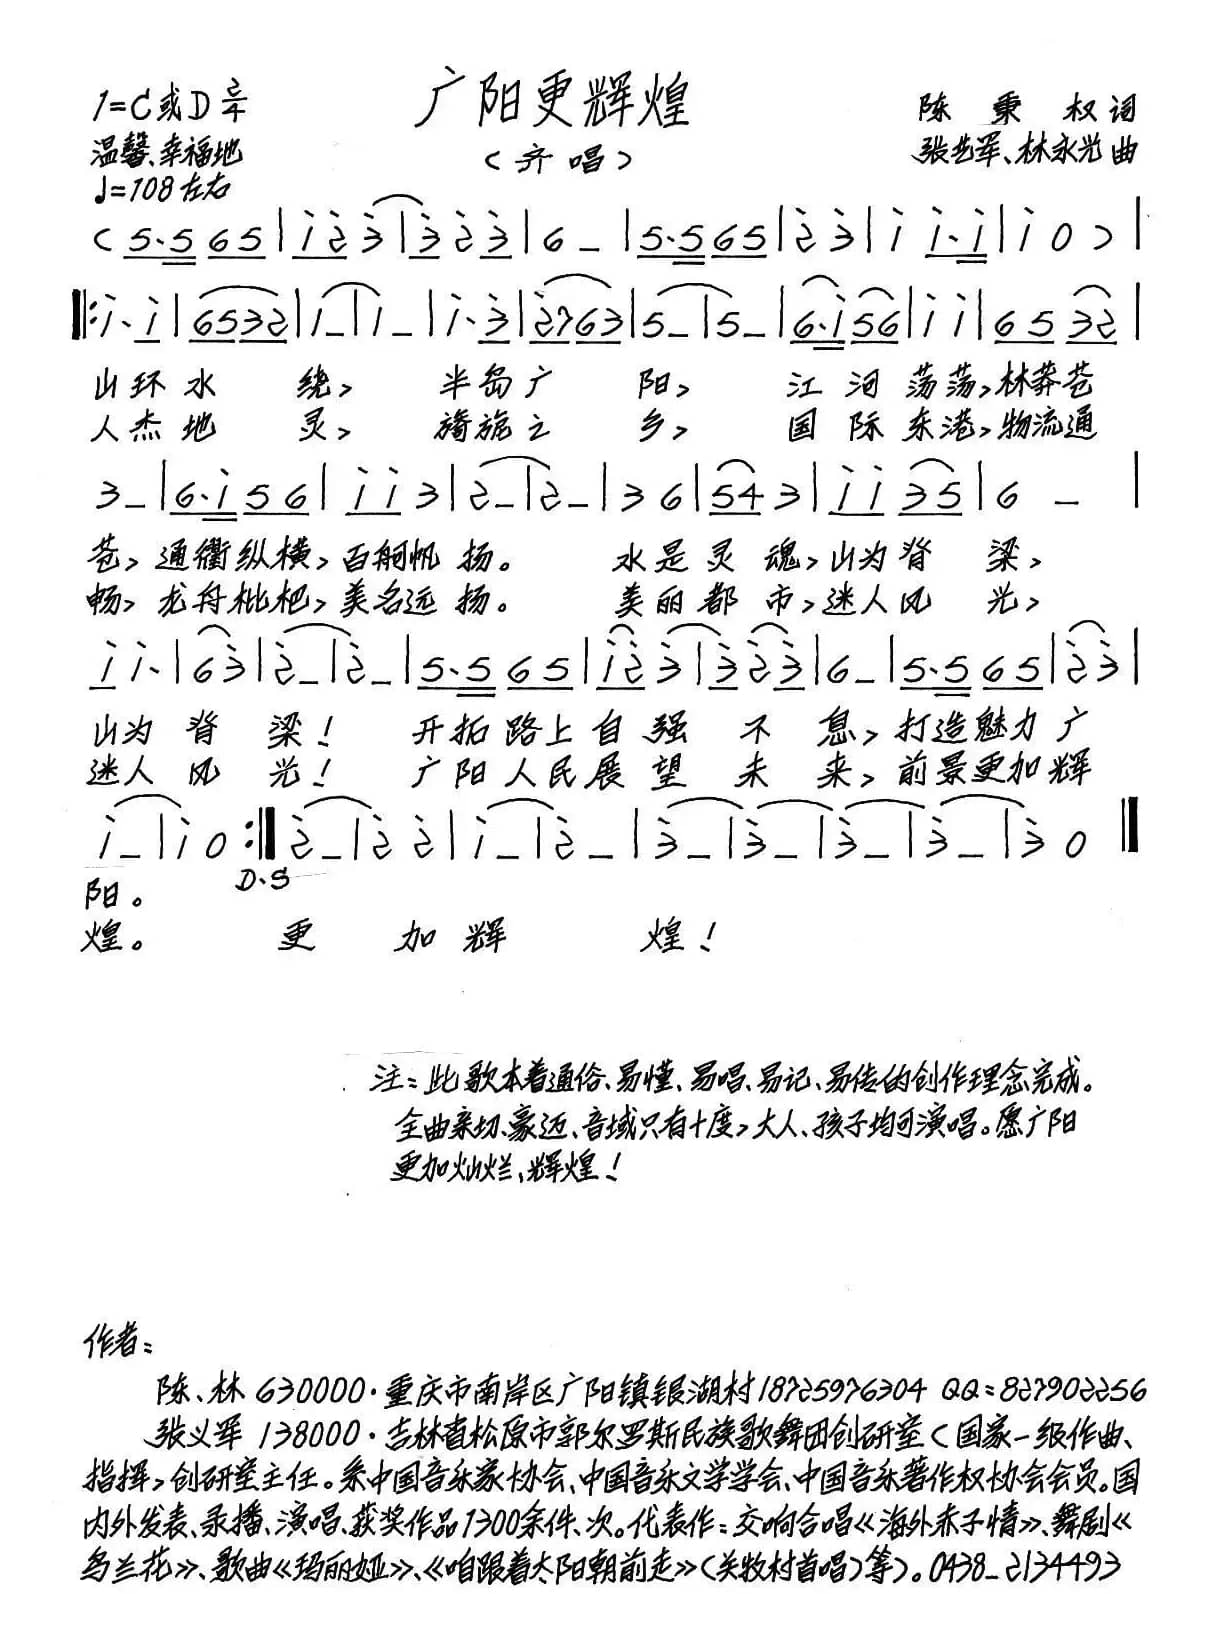 广阳更辉煌
1=C或D 2/4
陈秉权词
温馨、幸福地
(齐唱)
张艺军、林永光曲
♩=108左右
(5·5 65|i 2 3|3 2 3|6 –|5·5 65|2 3|i i·i|i 0)|
‖:i·i|6532|i –|i –|i·3|2763|5 –|5 –|6·i 56|i i|65 32|
山环水绕,半岛广阳,江河荡荡,林莽苍
人杰地灵,旖旎之乡,国际东港,物流通
3 –|6·i 56|i i 3|2 –|2 –|3 6|54 3|i i 35|6 –|
苍,通衢纵横,百舸帆扬。水是灵魂,山为脊梁,
畅,龙舟枇杷,美名远扬。美丽都市,迷人风光,
i i·|6 3|2 –|2 –|5·5 65|i 2 3|3 2 3|6 –|5·5 65|2 3|
山为脊梁!开拓路上自强不息,打造魅力广
迷人风光!广阳人民展望未来,前景更加辉
i –|i 0:‖2 –|2 2|i –|2 –|3 –|3 –|3 –|3 –|3 0‖
D.S
阳。
煌。更加辉煌!
注:此歌本着通俗、易懂、易唱、易记、易传的创作理念完成。
全曲亲切、豪迈、音域只有十度,大人、孩子均可演唱。愿广阳
更加灿烂、辉煌!
作者:
陈、林 630000·重庆市南岸区广阳镇银湖村18725976304 QQ:827902256
张义军 138000·吉林省松原市郭尔罗斯民族歌舞团创研室(国家一级作曲、
指挥,创研室主任。系中国音乐家协会、中国音乐文学学会、中国音乐著作权协会会员。国
内外发表、录播、演唱、获奖作品1300余件、次。代表作:交响合唱《海外赤子情》、舞剧《
乌兰花》、歌曲《玛丽娅》、《咱跟着太阳朝前走》(关牧村首唱)等)。0438–2134493